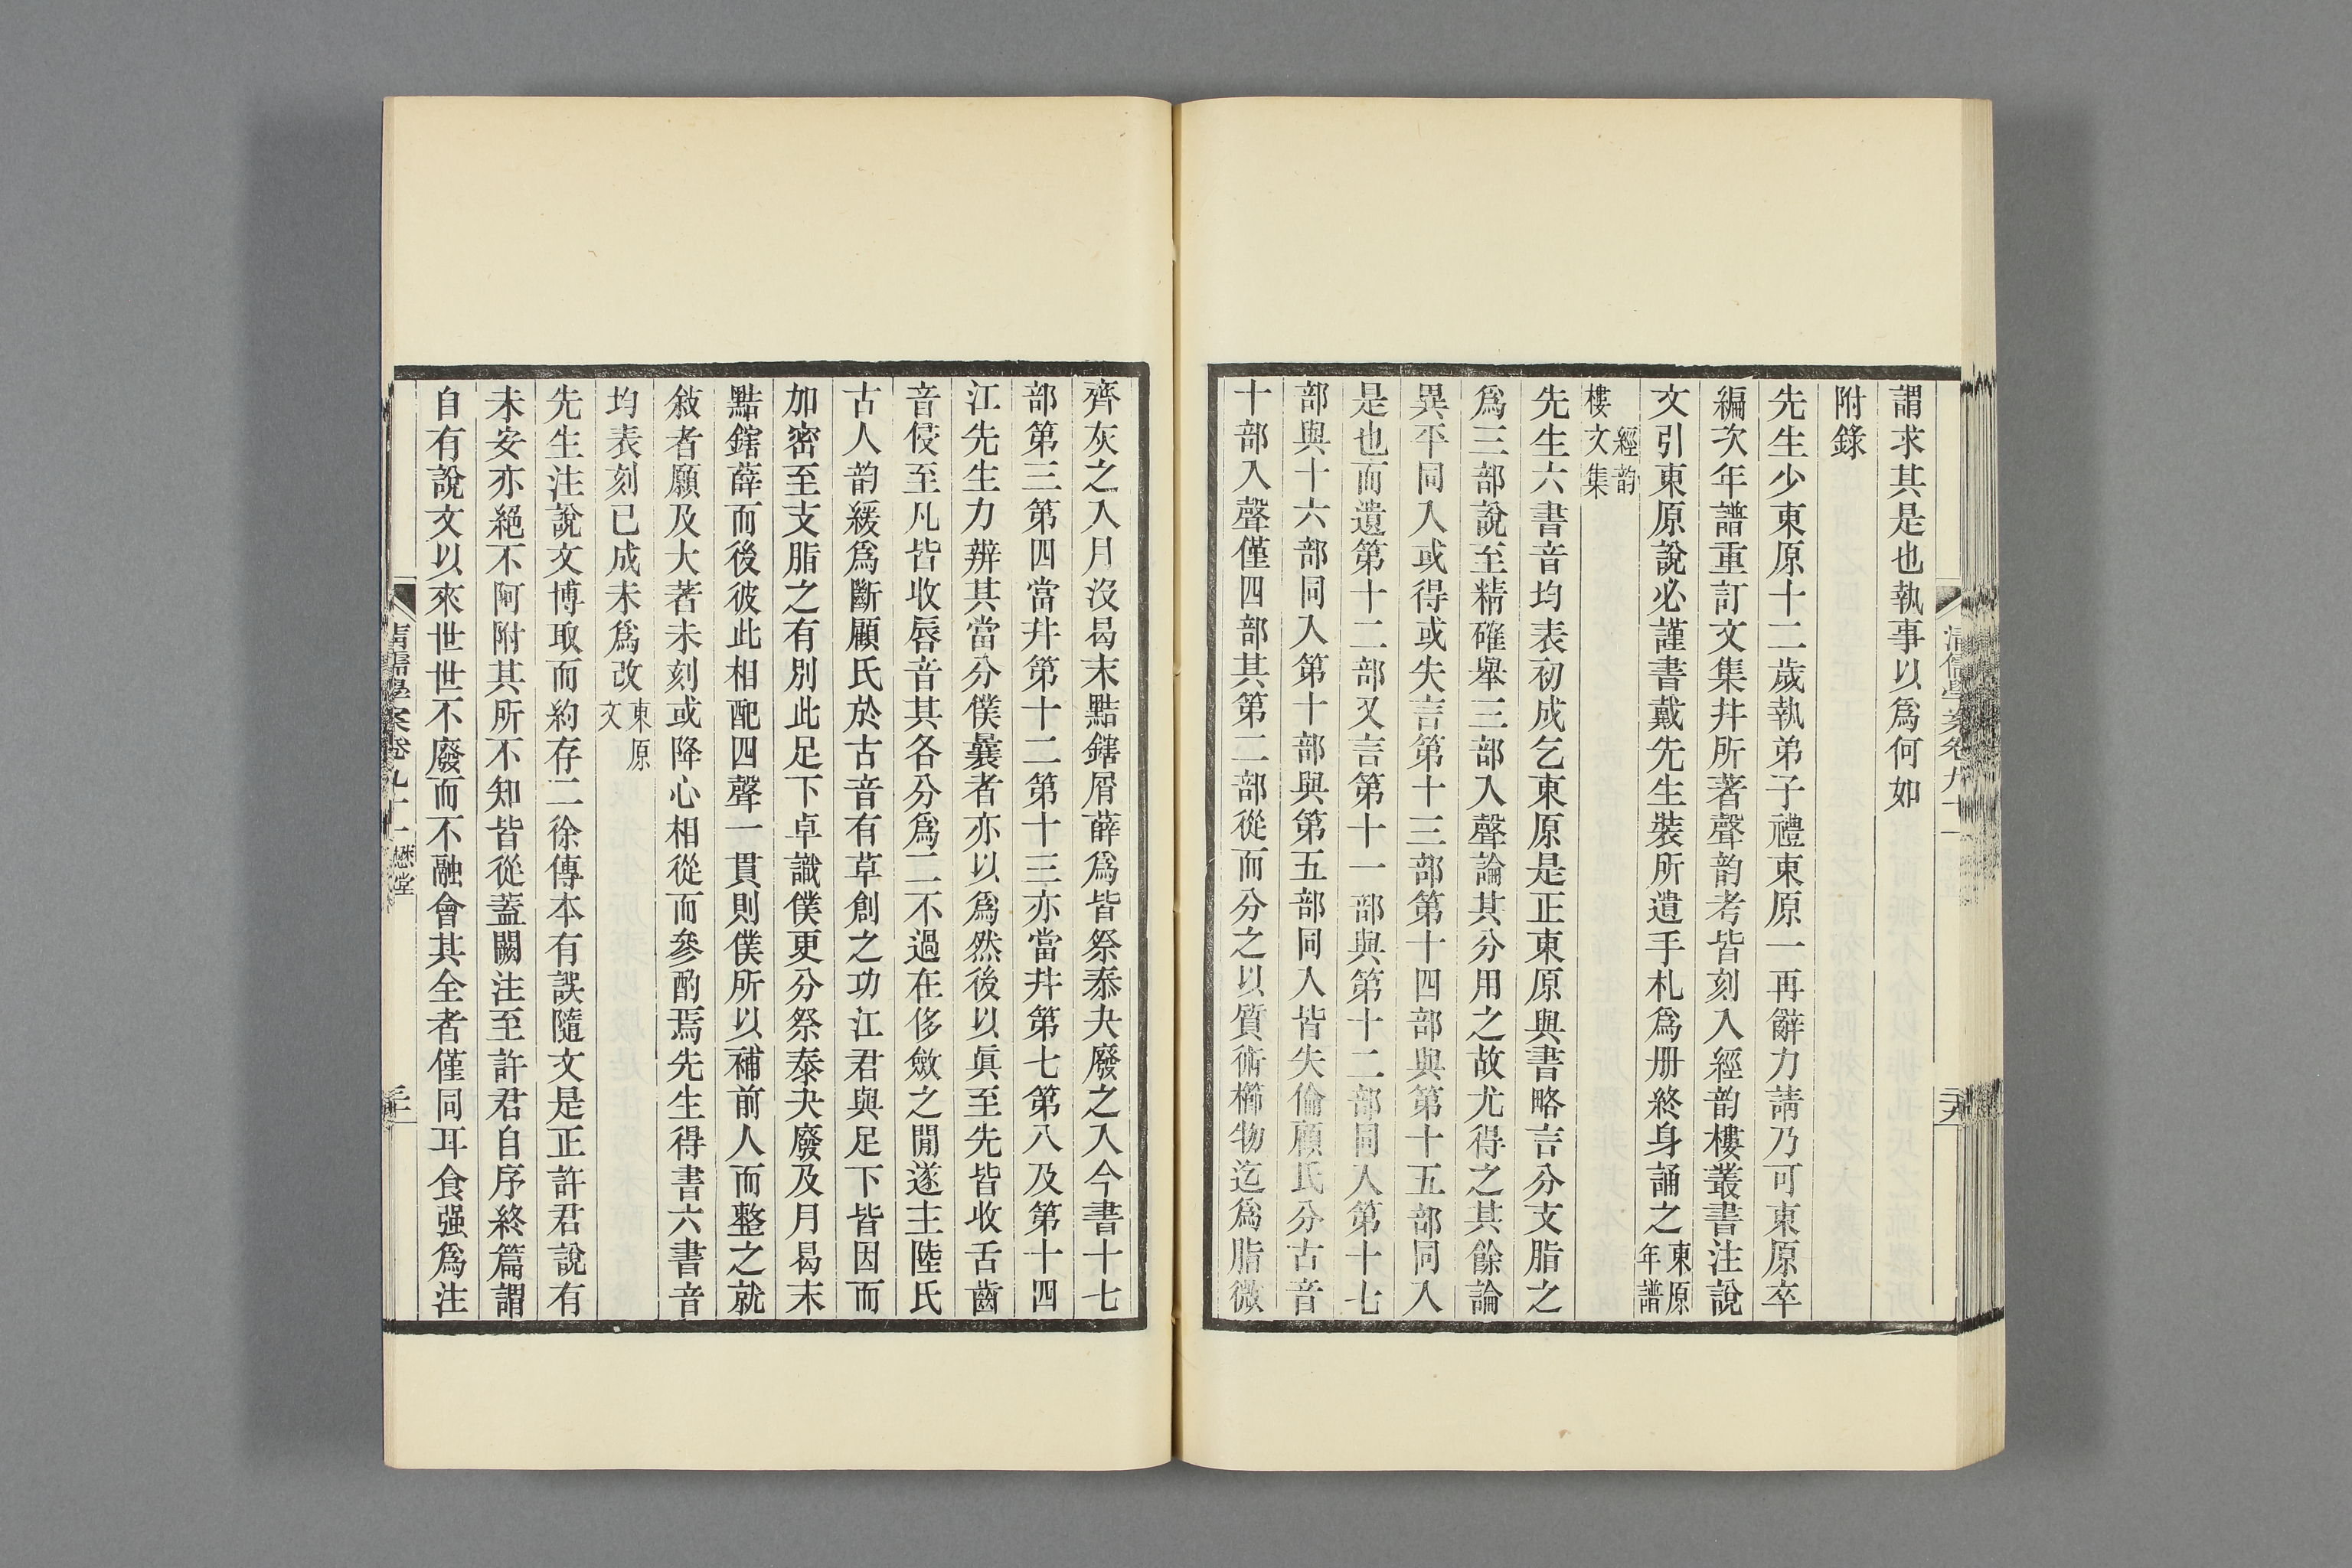 謂求其是也執事以爲何如
附錄
先生少東原十二歲執弟子禮東原一再辭力請乃可東原卒
編次年譜重訂文集幷所著聲韵考皆刻入經韵樓叢書注說
文引東原說必謹書戴先生裝所遺手札爲册終身誦之東原年譜
經韵樓文集
先生六書音均表初成乞東原是正東原與書略言分支脂之
爲三部說至精確舉三部入聲論其分用之故尤得之其餘論
異平同入或得或失言第十三部第十四部與第十五部同入
是也而遺第十二部又言第十一部與第十二部同入第十七
部與十六部同入第十部與第五部同入皆失倫顧氏分古音
十部入聲僅四部其第二部從而分之以質術櫛物迄爲脂微
清儒學案卷九十一
二十九
齊灰之入月沒曷末黠鎋屑薛爲皆祭泰夬廢之入今書十七
部第三第四當幷第十二第十三亦當幷第七第八及第十四
江先生力辨其當分僕曩者亦以爲然後以眞至先皆收舌齒
音侵至凡皆收脣音其各分爲二不過在侈斂之閒遂主陸氏
古人韵緩爲斷顧氏於古音有草創之功江君與足下皆因而
加密至支脂之有別此足下卓識僕更分祭泰夬廢及月曷末
黠鎋薛而後彼此相配四聲一貫則僕所以補前人而整之就
敍者願及大著未刻或降心相從而參酌焉先生得書六書音
均表刻已成未爲改東原文
先生注說文博取而約存二徐傳本有誤隨文是正許君說有
未安亦絕不阿附其所不知皆從蓋闕注至許君自序終篇謂
自有說文以來世世不廢而不融會其全者僅同耳食强爲注
清儒學案卷九十一 懋堂
三十